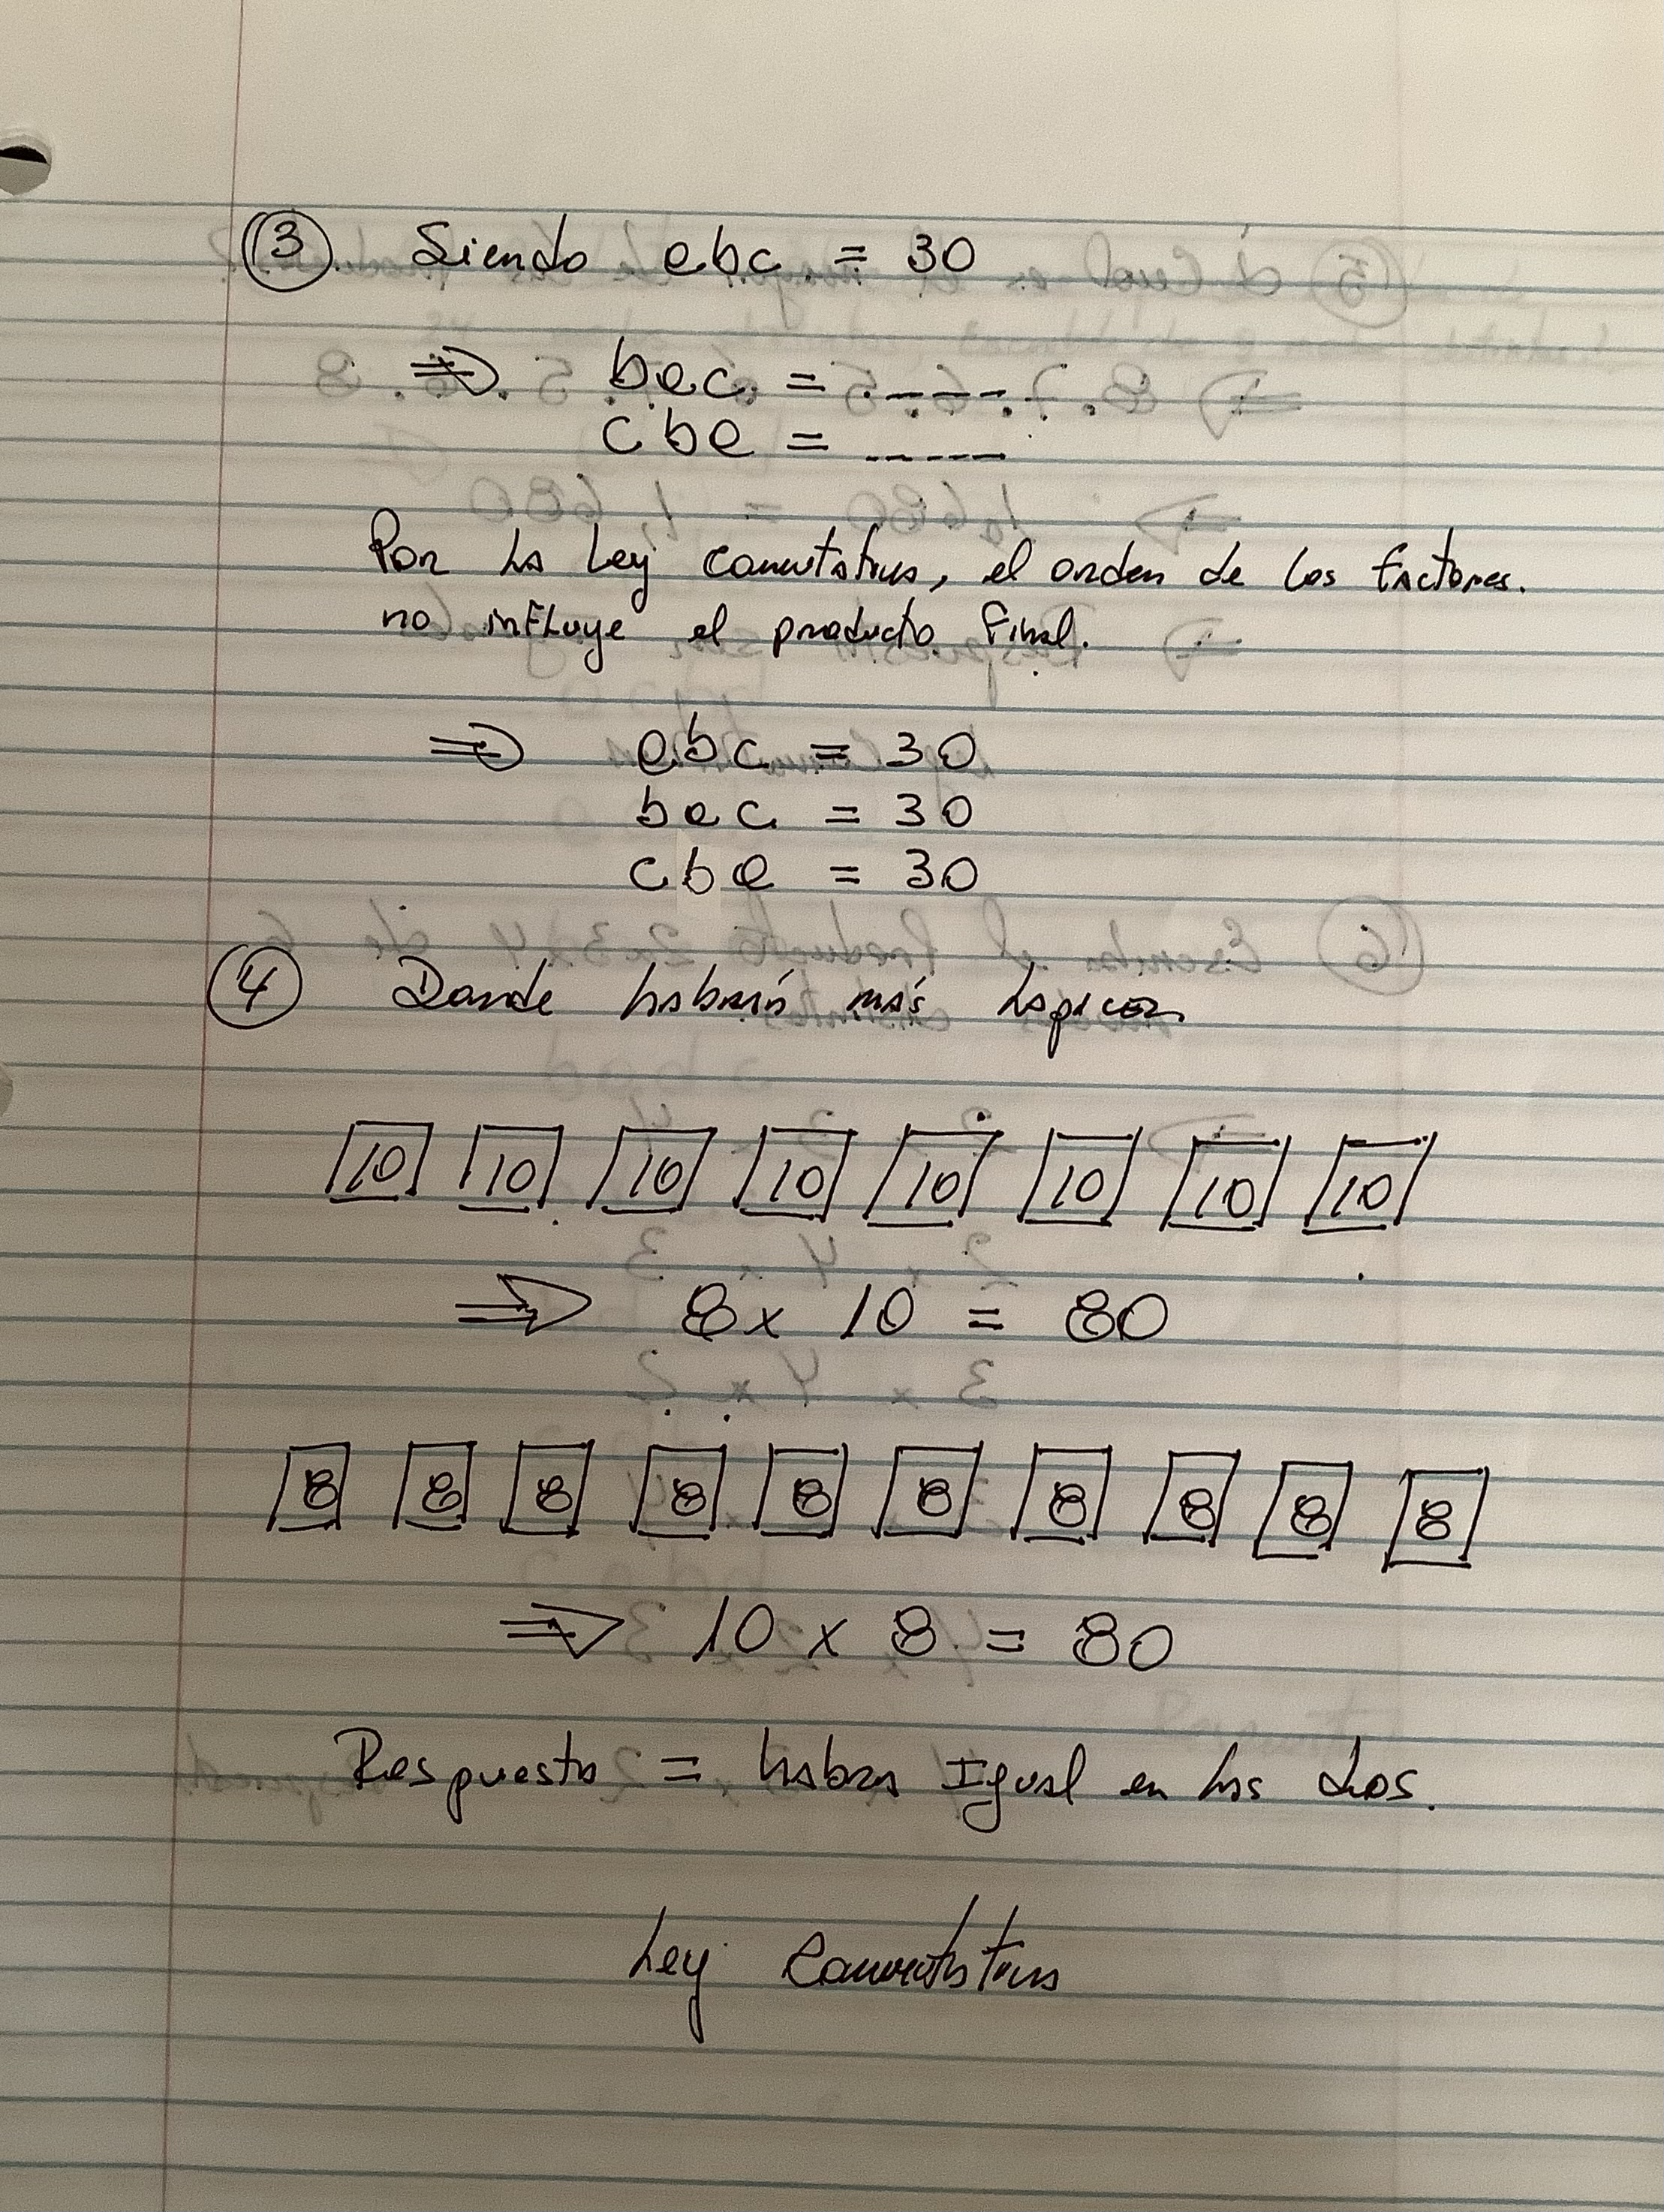 3. Siendo abc = 30
⇒ bac = -----
cba = -----
Por la Ley conmutativa, el orden de los factores.
no influye el producto final.
⇒ abc = 30
bac = 30
cba = 30
4 Donde habrán más lapices
10 10 10 10 10 10 10 10
⇒ 8 x 10 = 80
8 8 8 8 8 8 8 8 8 8
⇒ 10 x 8 = 80
Respuesta = habra Igual en las dos.
Ley Conmutativa